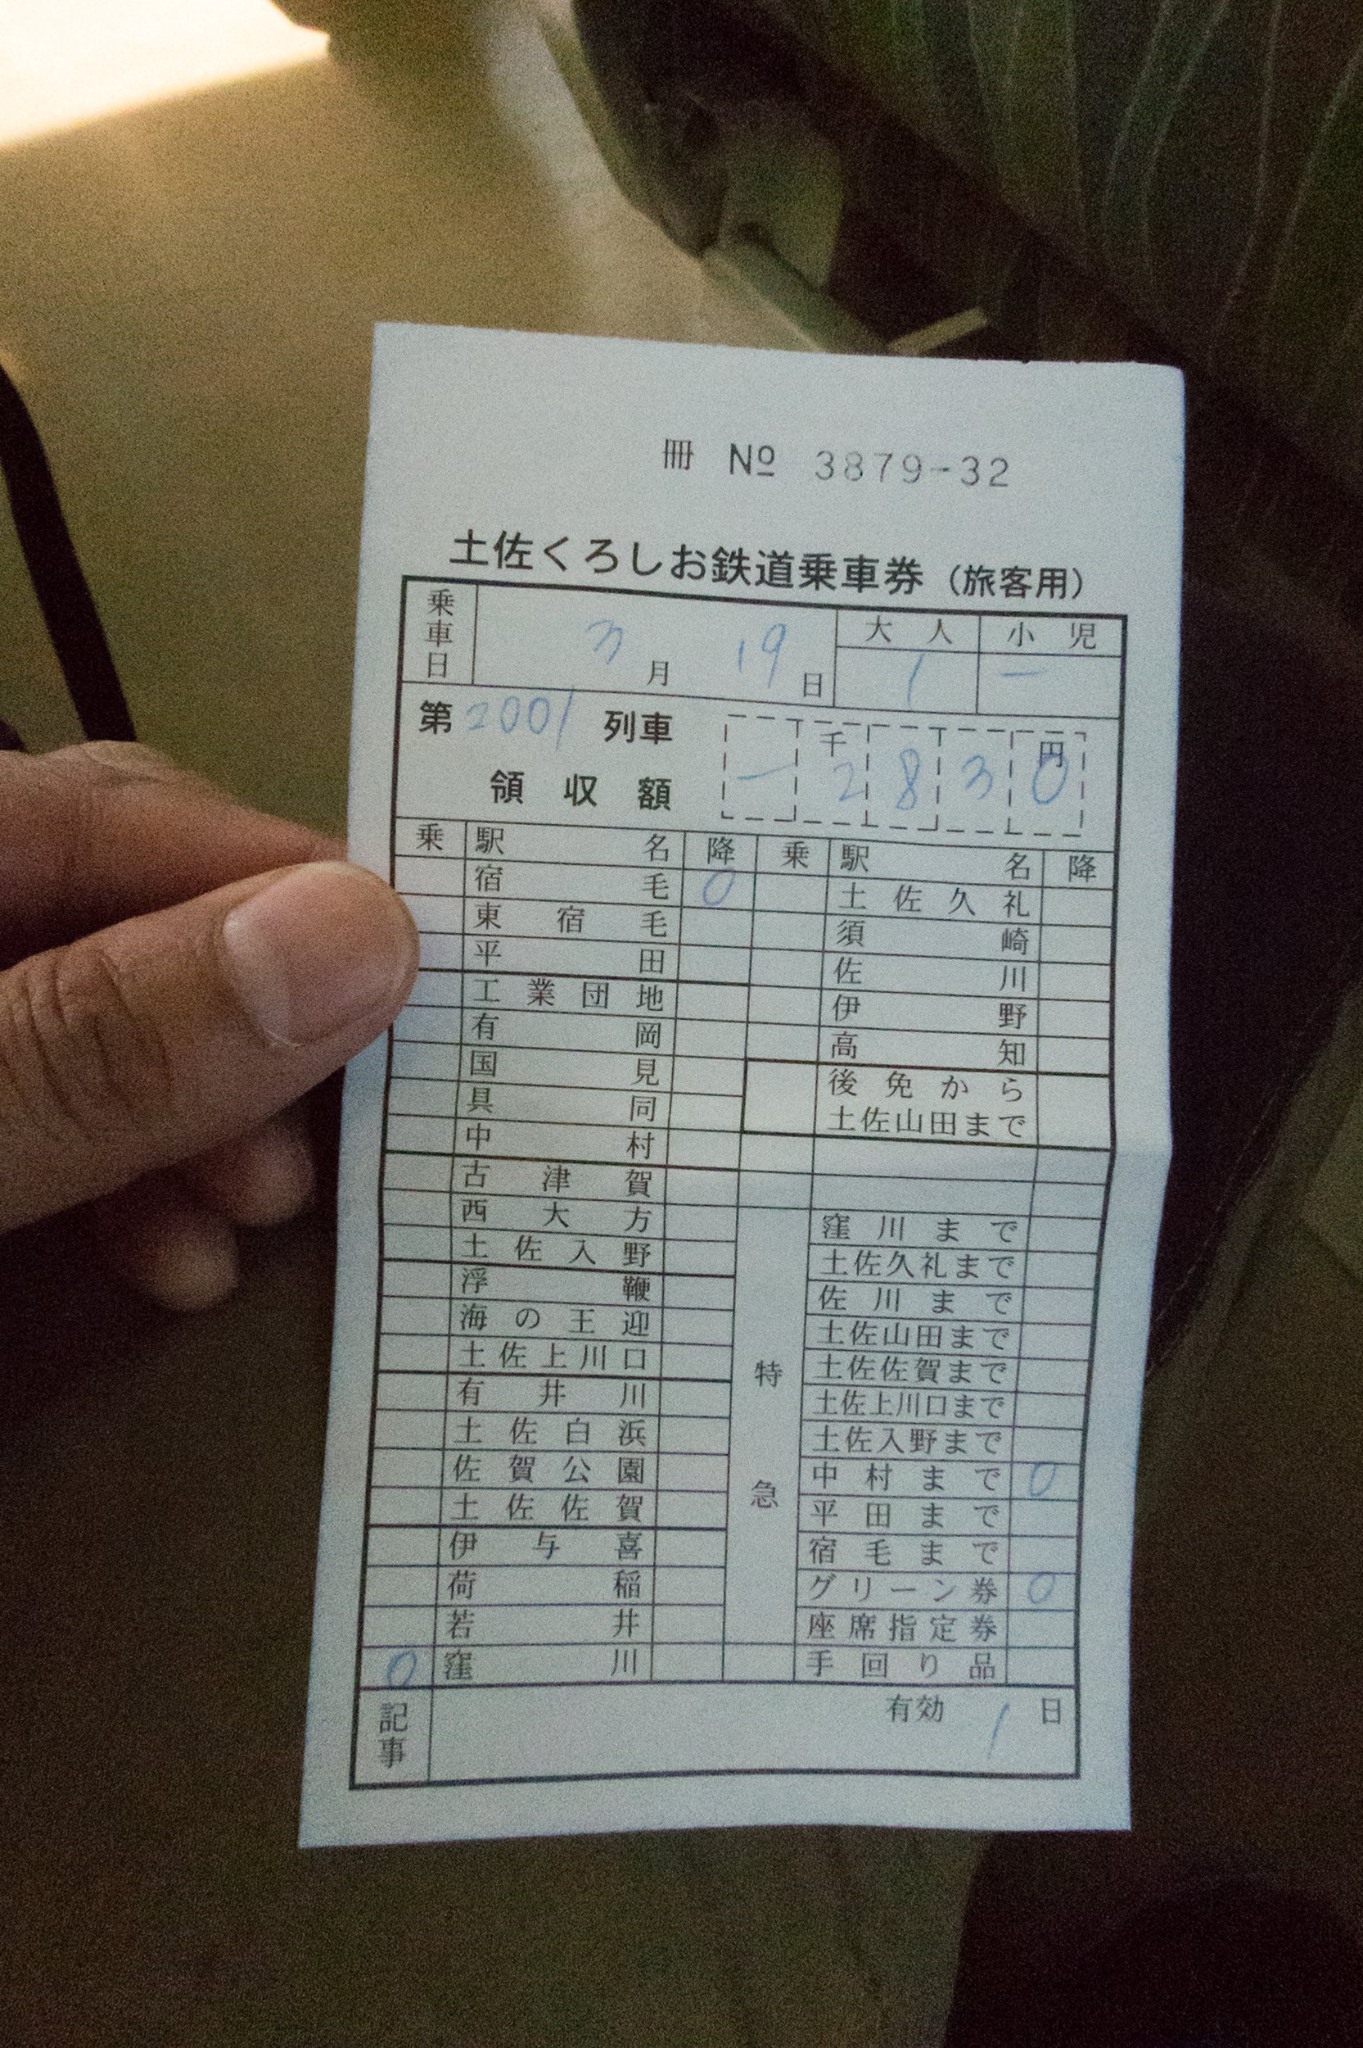 冊 No 3879-32
土佐くろしお鉄道乗車券（旅客用）
乗車日 3月 19日 大人 小児
1 ー
第2001列車
領収額 ー 千2 8 3 円0
乗 駅名 降 乗 駅名 降
宿毛 0 土佐久礼
東宿毛 須崎
平田 佐川
工業団地 伊野
有岡 高知
国見 後免から
具同 土佐山田まで
中村
古津賀
西大方 窪川まで
土佐入野 土佐久礼まで
浮鞭 佐川まで
海の王迎 土佐山田まで
土佐上川口 特急 土佐佐賀まで
有井川 土佐上川口まで
土佐白浜 土佐入野まで
佐賀公園 中村まで 0
土佐佐賀 平田まで
伊与喜 宿毛まで
荷稲 グリーン券 0
若井 座席指定券
0 窪川 手回り品
記事 有効 1日